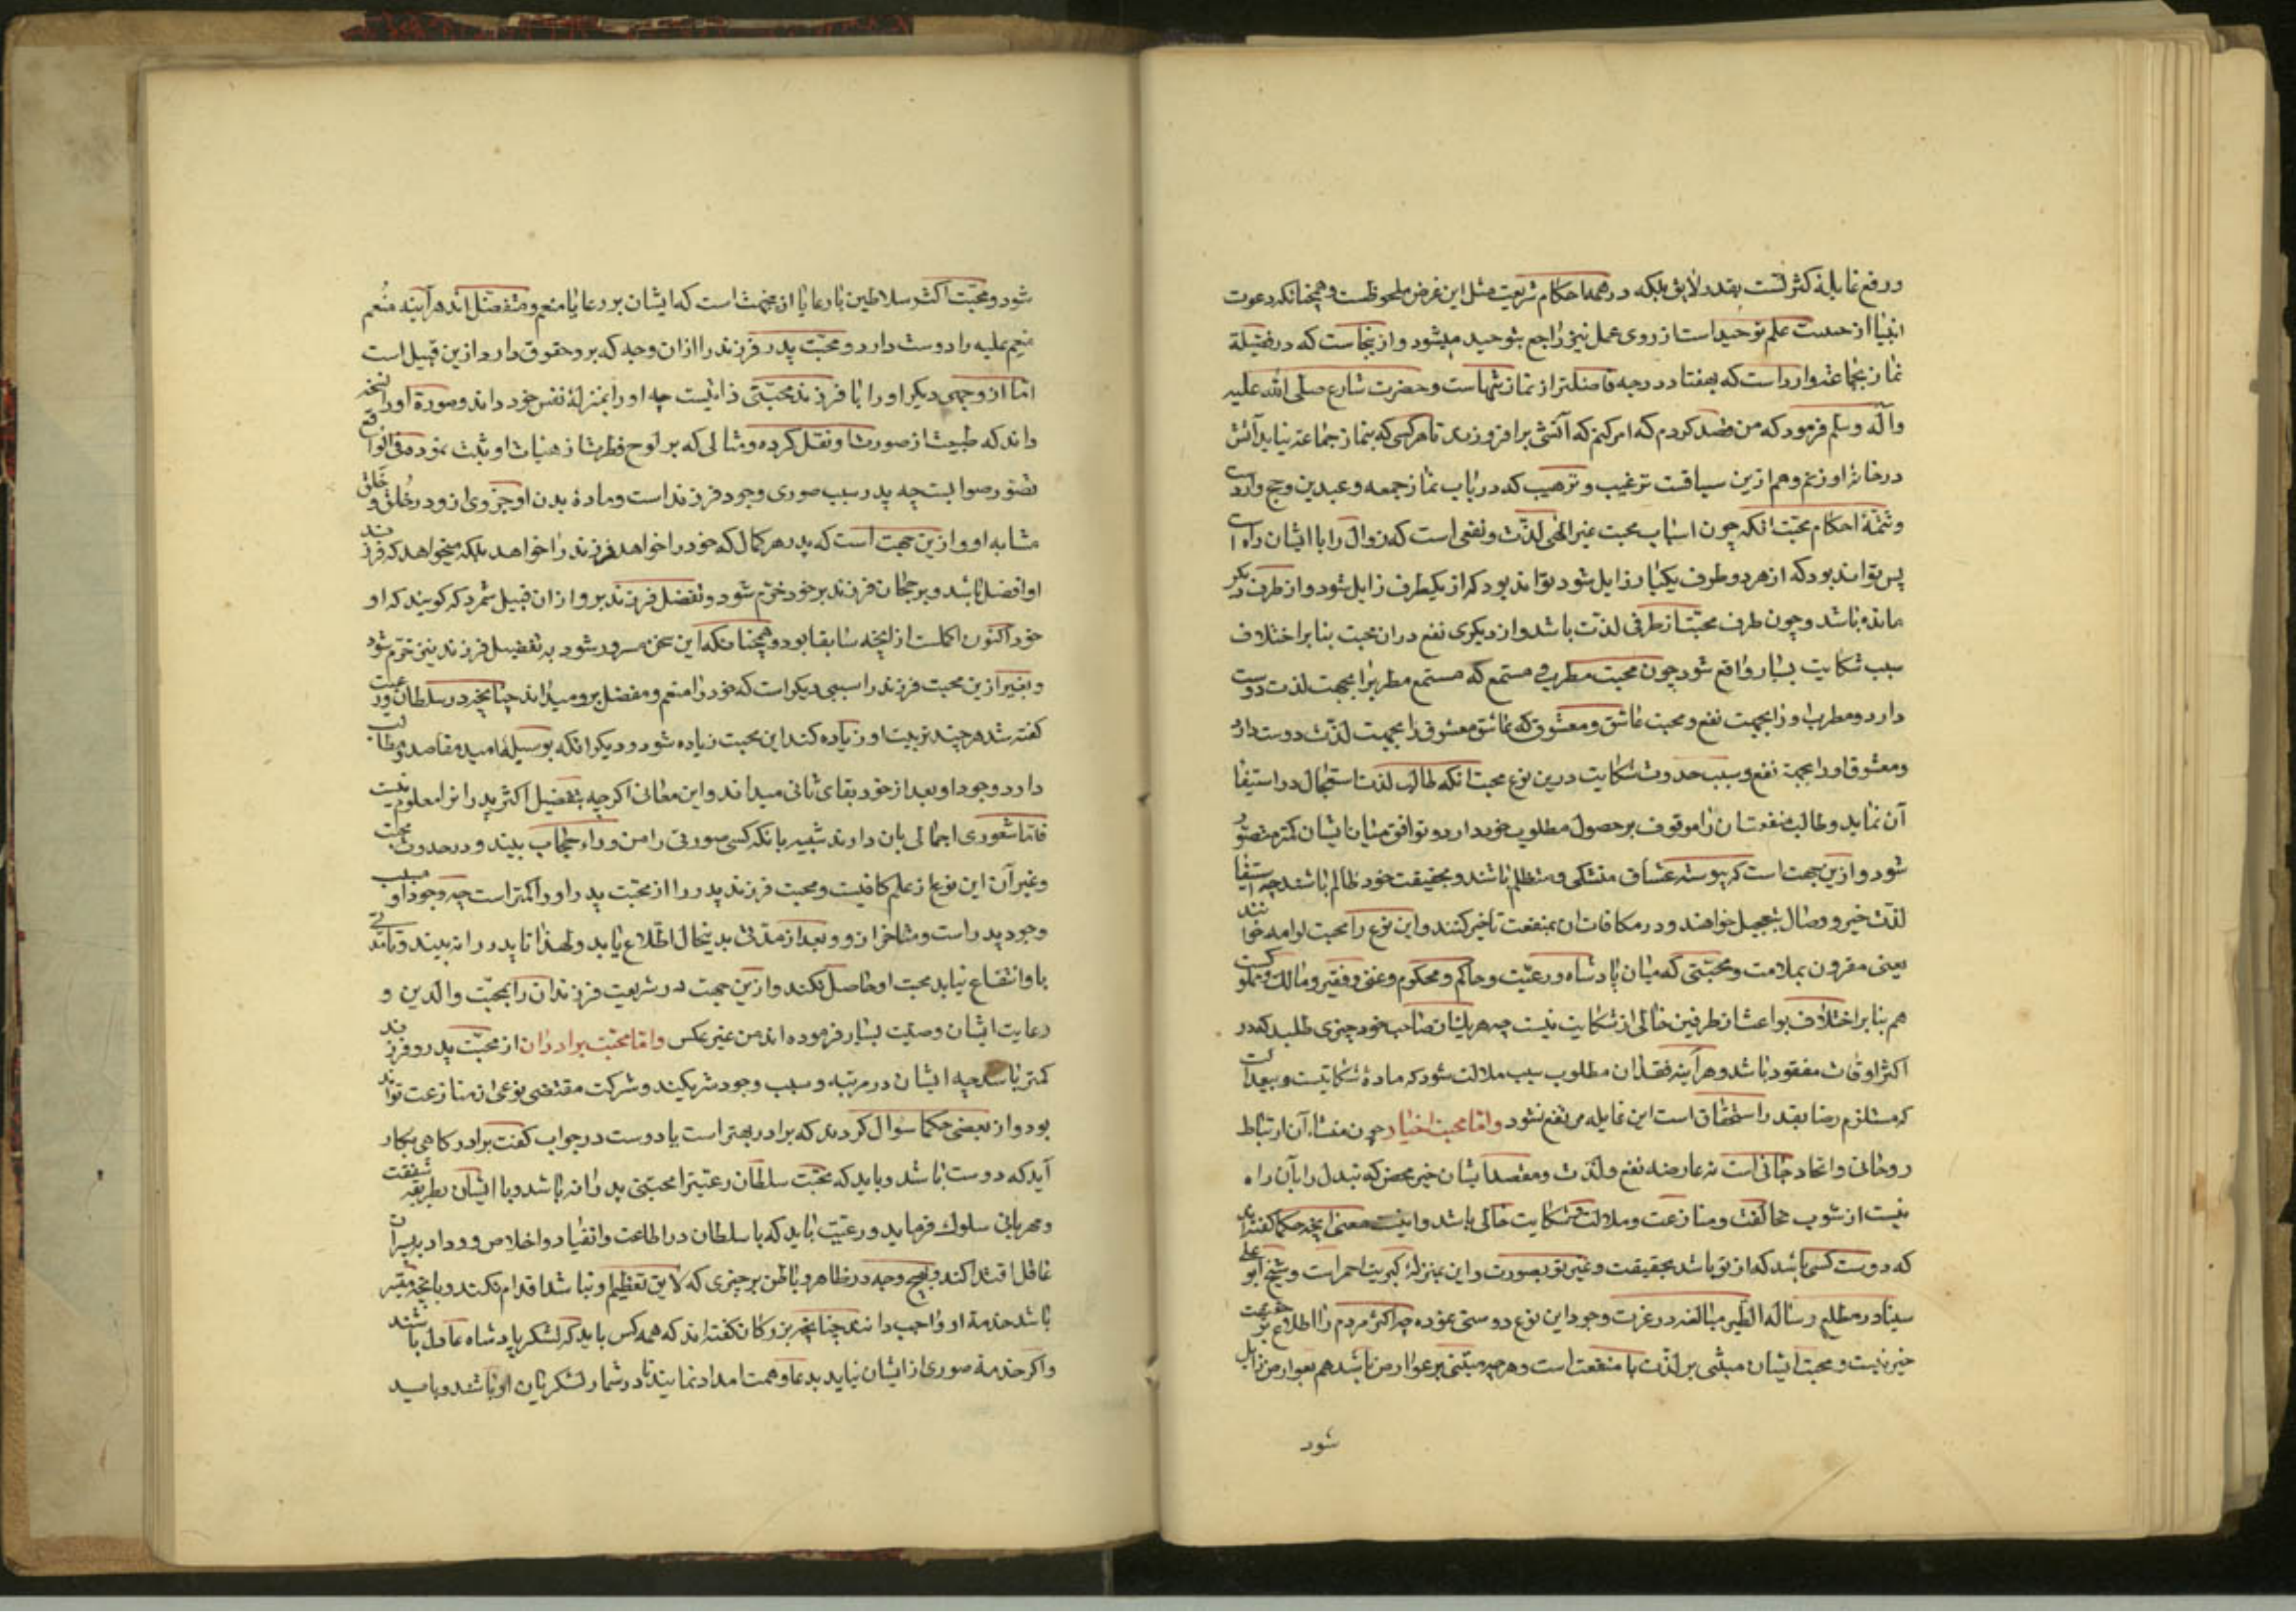 و رفع غایلهٔ کثرتست بقدر لایق بلکه در همه احکام شریعت مثل این غرض ملحوظست و همچنانکه دعوت
انبیا از حیثیت علم توحید است از روی عمل نیز راجع بتوحید میشود و ازینجاست که در فضیلة
نماز بجماعة وارد است که بهفتاد درجه فاضلتر از نماز تنهاست و حضرت شارع صلی الله علیه
وآله وسلم فرمود که من قصد کردم که امر کنم که آتشی برافروزند تا هر کسی که بنماز جماعة نیاید آتش
در خانهٔ او زنم و هم ازین سیاقت ترغیب و ترهیب که در باب نماز جمعه و عیدین و حج وارد است
و تتمّهٔ احکام محبّت آنکه چون اسباب محبت غیر الهی لذّت و نفعی است که زوال را با ایشان راه است
پس تواند بود که از هر دو طرف یکبار زایل شود و تواند بود که از یکطرف زایل شود و از طرف دیگر
مانده باشد و چون طرف محبت از طرفی لذّت باشد و از دیگری نفع در ان محبت بنابر اختلاف
سبب شکایت بسیار واقع شود چون محبت مطرب و مستمع که مستمع مطربرا بجهت لذت دوست
دارد و مطرب او را بجهت نفع و محبت عاشق و معشوق که عاشق معشوق را بجهت لذّت دوست دارد
و معشوق او را بجهة نفع و سبب حدوث شکایت درین نوع محبت آنکه طالب لذت استعجال در استیفا
آن نماید و طالب منفعت آن را موقوف بر حصول مطلوب خود دارد و توافق میان ایشان کمتر متصوّر
شود و ازین جهت است که پیوسته عشاق متشکی و متظلم باشند و بحقیقت خود ظالم باشند چه استیفا
لذّت خیر و وصال بتعجیل خواهند و در مکافات ان بمنفعت تاخیر کنند و این نوع را محبت لوامه خوانند
یعنی مقرون بملامت و محبّتی که میان پادشاه و رعیّت و حاکم و محکوم و غنی و فقیر و مالک و مملوکست
هم بنا بر اختلاف بواعث از طرفین خالی از شکایت نیست چه هر یک ز ایشان از صاحب خود چیزی طلبد که در
اکثر اوقات مفقود باشد و هر آینه فقدان مطلوب سبب ملالت شود که مادهٔ شکایتست و بعدالت
که مستلزم رضا بقدر استحقاق است این غایله مرتفع نشود و امّا محبت اخیار چون منشأ آن ارتباط
روحانی و اتحاد جانی است نه عارضه نفع و لذّت و مقصد ایشان خیر محض که تبدل را بآن راه
نیست از شوب مخالفت و منازعت و ملالت و شکایت خالی باشد و اینست معنی آنچه حکما گفته‌اند
که دوست کسی باشد که از تو باشد بحقیقت و غیر تو بصورت و این بمنزلهٔ کبریت احمر است و شیخ ابو علی
سینا در مطلع رسالهٔ الطیر مبالغه در عزت وجود این نوع دوستی نموده چه اکثر مردم را اطلاع بر حقیقت
خیر نیست و محبت ایشان مبتنی بر لذّت یا منفعت است و هر چه مبتنی بر عوارض باشد هم بعوارض زایل
شود
شود و محبّت اکثر سلاطین با رعایا ازینجهت است که ایشان بر رعایا منعم و متفضّل اند هر آینه مُنعم
منعم علیه را دوست دارد و محبّت پدر فرزند را از ان وجه که بر و حقوق دارد ازین قبیل است
امّا از وجهی دیگر او را با فرزند محبّتی ذاتیست چه او را بمنزلهٔ نفس خود داند و صورة او را نسخه
داند که طبیعت از صورت او نقل کرده و مثالی که بر لوح فطرت از هیئات او ثبت نموده و فی الواقع
تصوّر صوابست چه پدر سبب صوری وجود فرزند است و مادهٔ بدن او جزوی ازو و در خُلق و خَلق
مشابه او و ازین جهت است که پدر هر کمال که خود را خواهد فرزند را خواهد بلکه میخواهد که فرزند
او افضل باشد و برجحان فرزند بر خود خرّم شود و تفضل فرزند برو از ان قبیل شمرد که گویند که او
خود اکنون اکملست از آنچه سابقا بود و همچنانکه این سخن مسرور شود به تفضیل فرزند نیز خرّم شود
و بغیر ازین محبت فرزند را سببی دیگر است که خود را منعم و مفضل برو میداند چنانچه در سلطان و رعیت
گفته شد هر چند تربیت او زیاده کند این محبت زیاده شود و دیگر انکه بوسیلهٔ او امید مقاصد و مطالب
دارد و وجود او بعد از خود بقای ثانی میداند و این معانی اگر چه بتفضیل اکثر پدرانرا معلوم نیست
فامّا شعوری اجمالی بان دارند شبیه بانکه کسی صورتی را من وراء حجاب بیند و در حدوث محبت
و غیر آن این نوع از علم کافیست و محبت فرزند پدر را از محبّت پدر او را کمتر است چه وجود او مسبب
وجود پدر است و متاخر ازو و بعد از مدّتی بدینحال اطّلاع یابد و لهذا تا پدر را نه بیند و تا مدّتی
باو انتفاع نیابد محبت او حاصل نکند و ازین جهت در شریعت فرزندان را بمحبّت والدین و
رعایت ایشان وصیّت بسیار فرموده اند من غیر عکس و امّا محبّت برادران از محبّت پدر و فرزند
کمتر باشد چه ایشان در مرتبه و سبب وجود شریکند و شرکت مقتضی نوعی از منازعت تواند
بود و از بعضی حکما سؤال کردند که برادر بهتر است یا دوست در جواب گفت برادر گاهی بکار
آید که دوست باشد و باید که محبّت سلطان رعیتّرا محبتی پدرانه باشد و با ایشان بطریقه شفقت
و مهربانی سلوک فرماید و رعیّت باید که با سلطان در اطاعت و انقیاد و اخلاص و وداد بپسران
عاقل اقتدا کند و بهیچ وجه در ظاهر و باطن بر چیزی که لایق تعظیم او نباشد اقدام نکند و بانچه میّسر
باشد خدمة او واجب داند چنانچه بزرگان گفته اند که همه کس باید که لشکر پادشاه عادل باشند
و اگر خدمة صوری از ایشان نیاید بدعا و همت امداد نمایند تا در شمار لشکریان او باشند و باید